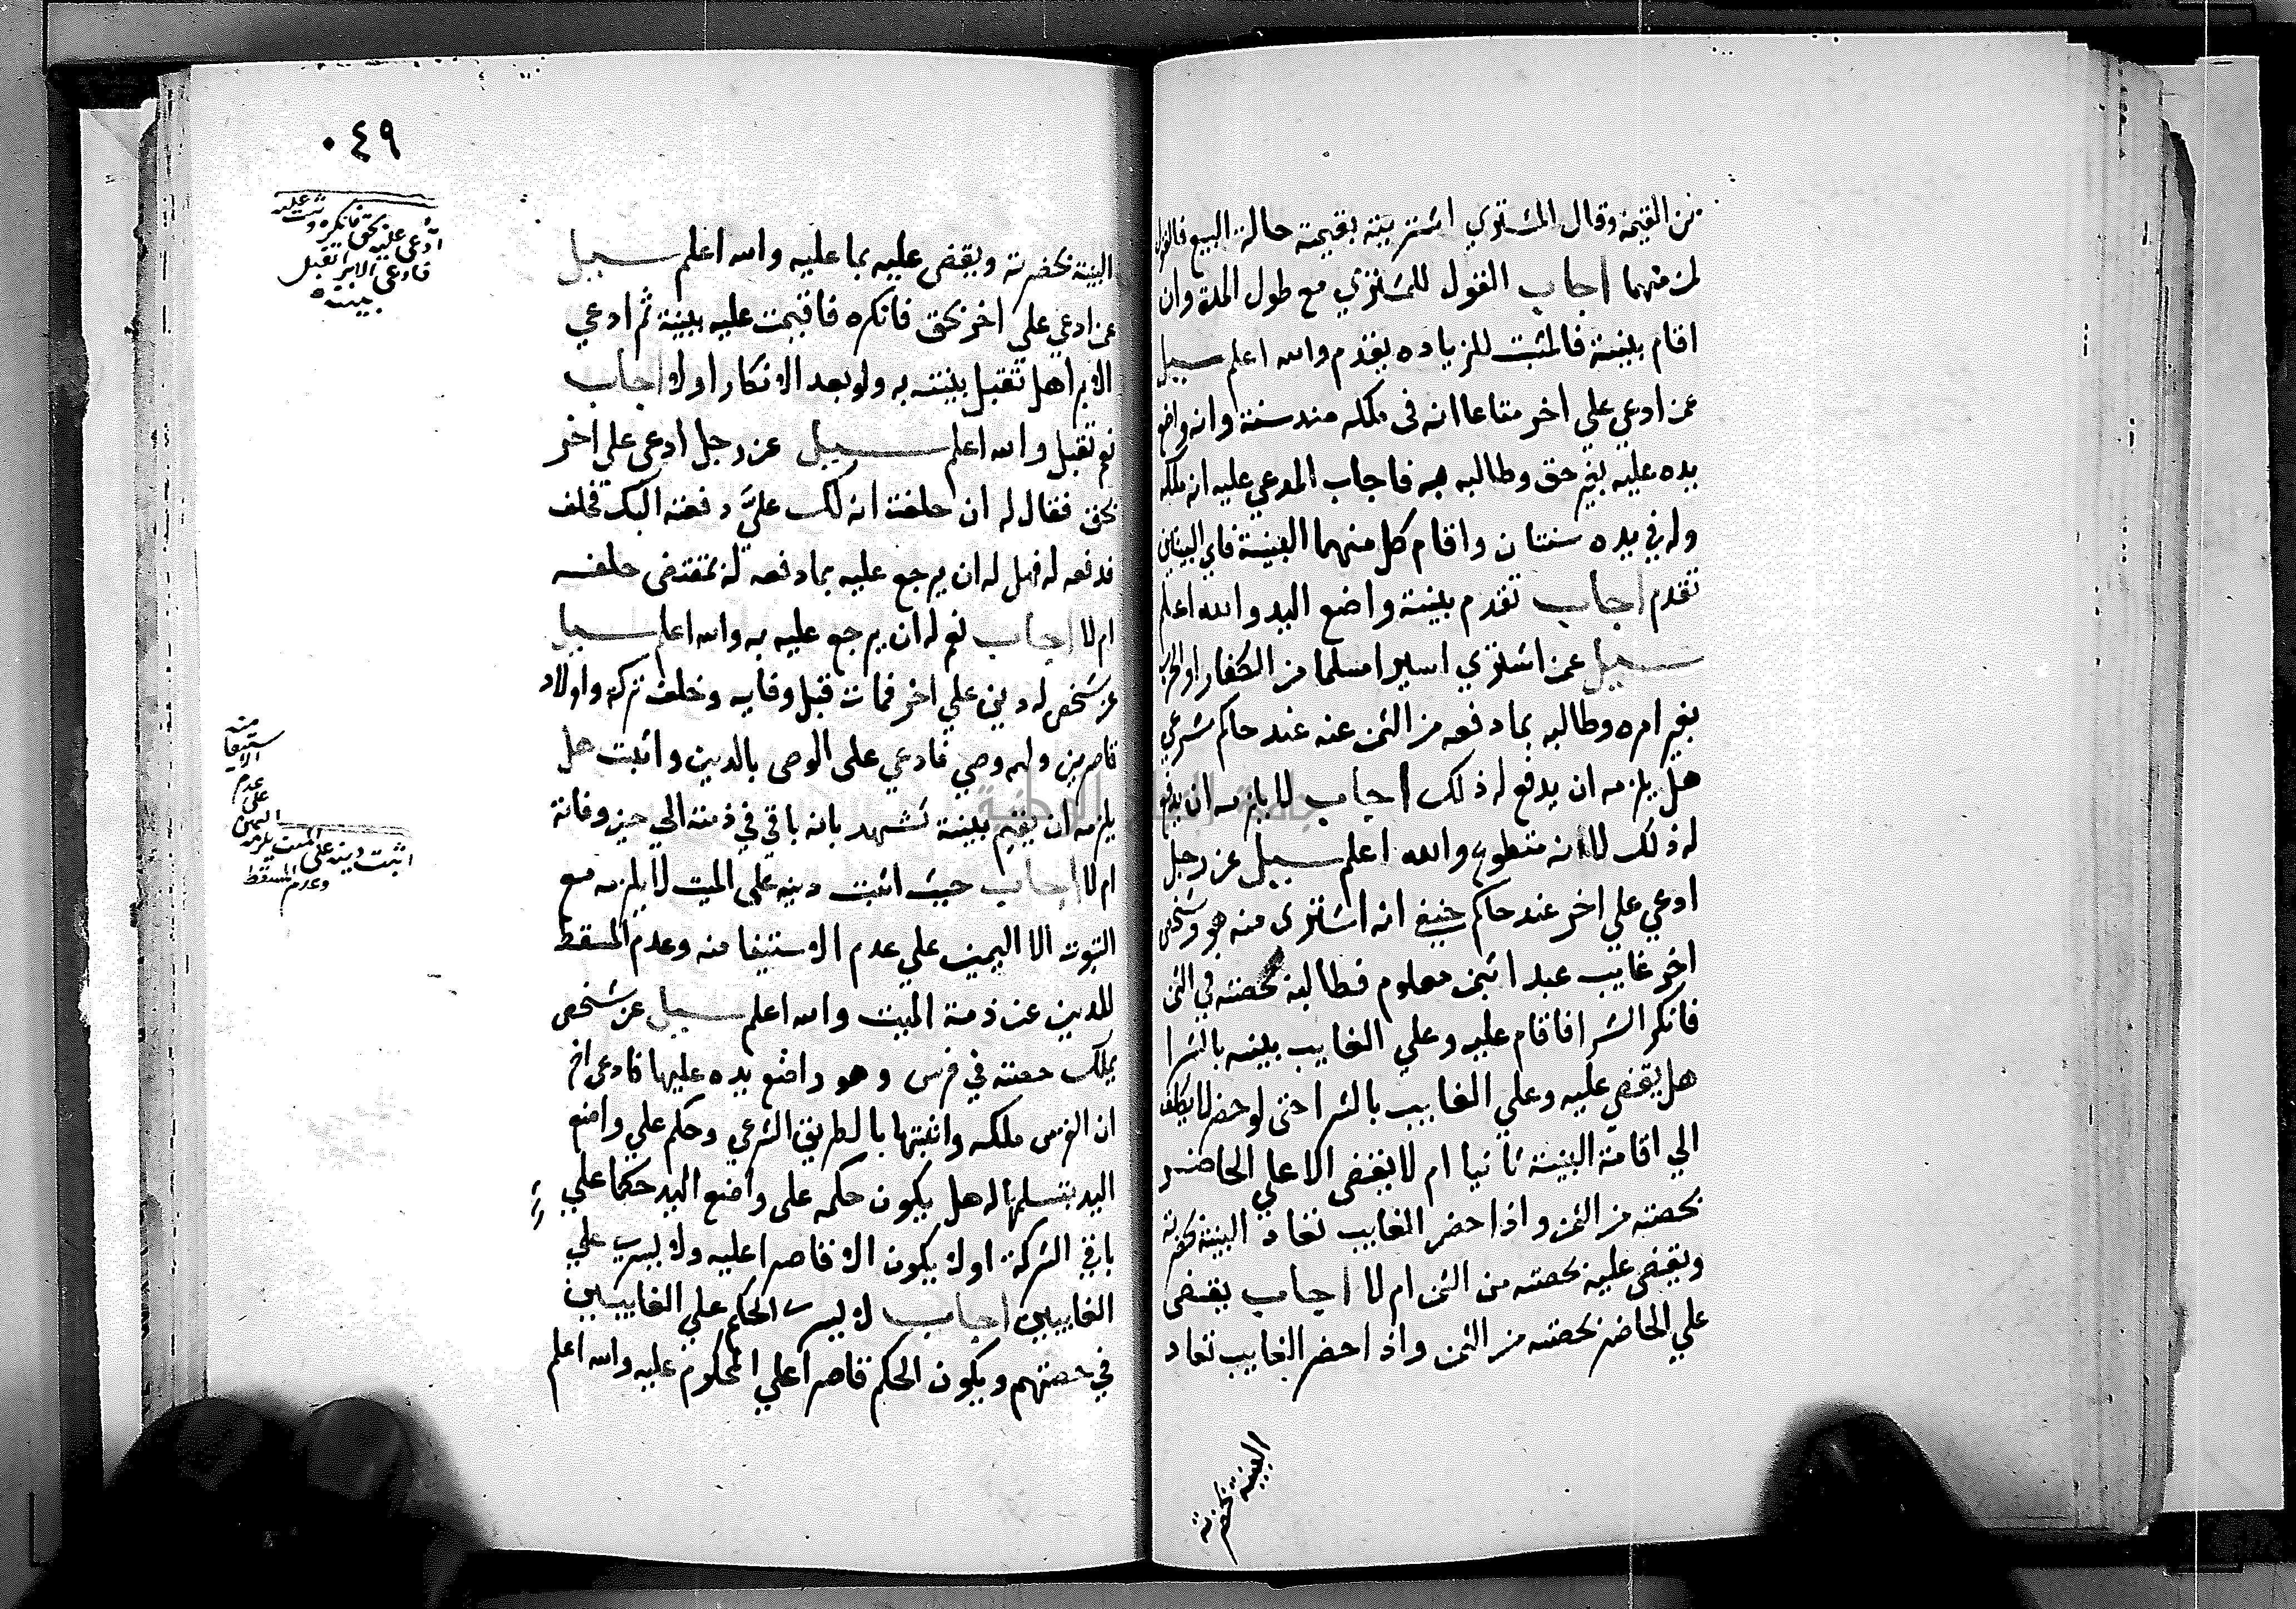 من القيمة وقال المشتري اشتريته بقيمته حالة البيع فالقول
لمن منهما اجاب القول للمشتري مع طول المدة وان
اقام بينة فالمثبت للزياده يقدم والله اعلم سيل
عمن ادعي علي اخر متاعا انه في ملكه منذ سنة وانه واضع
يده عليه بغير حق وطالبه به فاجاب المدعي عليه انه ملكه
وله في يده سنتان واقام كل منهما البينة فاي البينتين
تقدم اجاب تقدم بينة واضع اليد والله اعلم
سيل عمن اشتري اسيرا مسلما من الكفار او الحرب
بغير امره وطالبه بما دفعه من الثمن عنه عند حاكم شرعي
هل يلزمه ان يدفع له ذلك اجاب لا يلزمه ان يدفع
له ذلك لانه متطوع والله اعلم سيل عن رجل
ادعي علي اخر عند حاكم حنيفي انه اشترى منه هو وشخص
اخر غايب عبدا بثمن معلوم فطالبه بحصته في الثمن
فانكر الشرا فاقام عليه وعلي الغايب بينه بالشرا
هل يقضي عليه وعلي الغايب بالشرا حتى لو حضر لا يكلف
الي اقامة البينة ثانيا ام لا يقضى الا علي الحاضر
بحصته من الثمن واذا حضر الغايب تعاد البينة بحضرته
ويقضى عليه بحصته من الثمن ام لا اجاب يقضى
علي الحاضر بحصته من الثمن واذا احضر الغايب تعاد
البينة بحضرته
٠٤٩
البينة بحضرته ويقضى عليه بما عليه والله اعلم سيل
عمن ادعي علي اخر بحق فانكره فاقيمت عليه بينة ثم ادعي
الابرا هل تقبل بينته به ولو بعد الانكار اولا اجاب
نعم تقبل والله اعلم سيل عن رجل ادعى علي اخر
بحق فقال له ان حلفت انه لك عليَّ دفعته اليك فحلف
فدفعه له فهل له ان يرجع عليه بما دفعه له بمقتضى حلفه
ام لا اجاب نعم له ان يرجع عليه به والله اعلم سيل
عن شخص له دين علي اخر فمات قبل وفايه وخلف تركة واولاد
قاصرين ولهم وصي فادعي على الوصي بالدين واثبت هل
يلزمه ان يقيم بينة تشهد بانه باقي في ذمته الي حين وفاته
ام لا اجاب حيث اثبت دينه علي الميت لا يلزمه مع
الثبوت الا اليمين علي عدم الاستيفا منه وعدم المسقط
للدين عن ذمة الميت والله اعلم سيل عن شخص
يملك حصته في فرس وهو واضع يده عليها فادعى اخر
ان الفرس ملكه واثبتها بالطريق الشرعي وحكم علي واضع
اليد بتسلمها له هل يكون حكمه على واضع اليد حكما علي
باقي الشركة اولا يكون الا قاصرا عليه ولا يسري علي
الغايبين اجاب لا يسري الحكم علي الغايبين
في حصتهم ويكون الحكم قاصرا علي المحكوم عليه والله اعلم
ادعى عليه بحق فانكره وثبت عليه
فادعى الابرا تقبل
بينته
اثبت دينه على الميت يلزمه
اليمين
على
عدم
الاستيفا
منه
وعدم المسقط